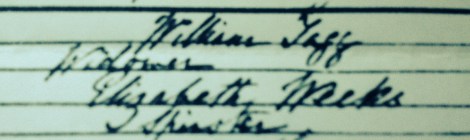 William Tagg
Widower
Elizabeth Weeks
Spinster